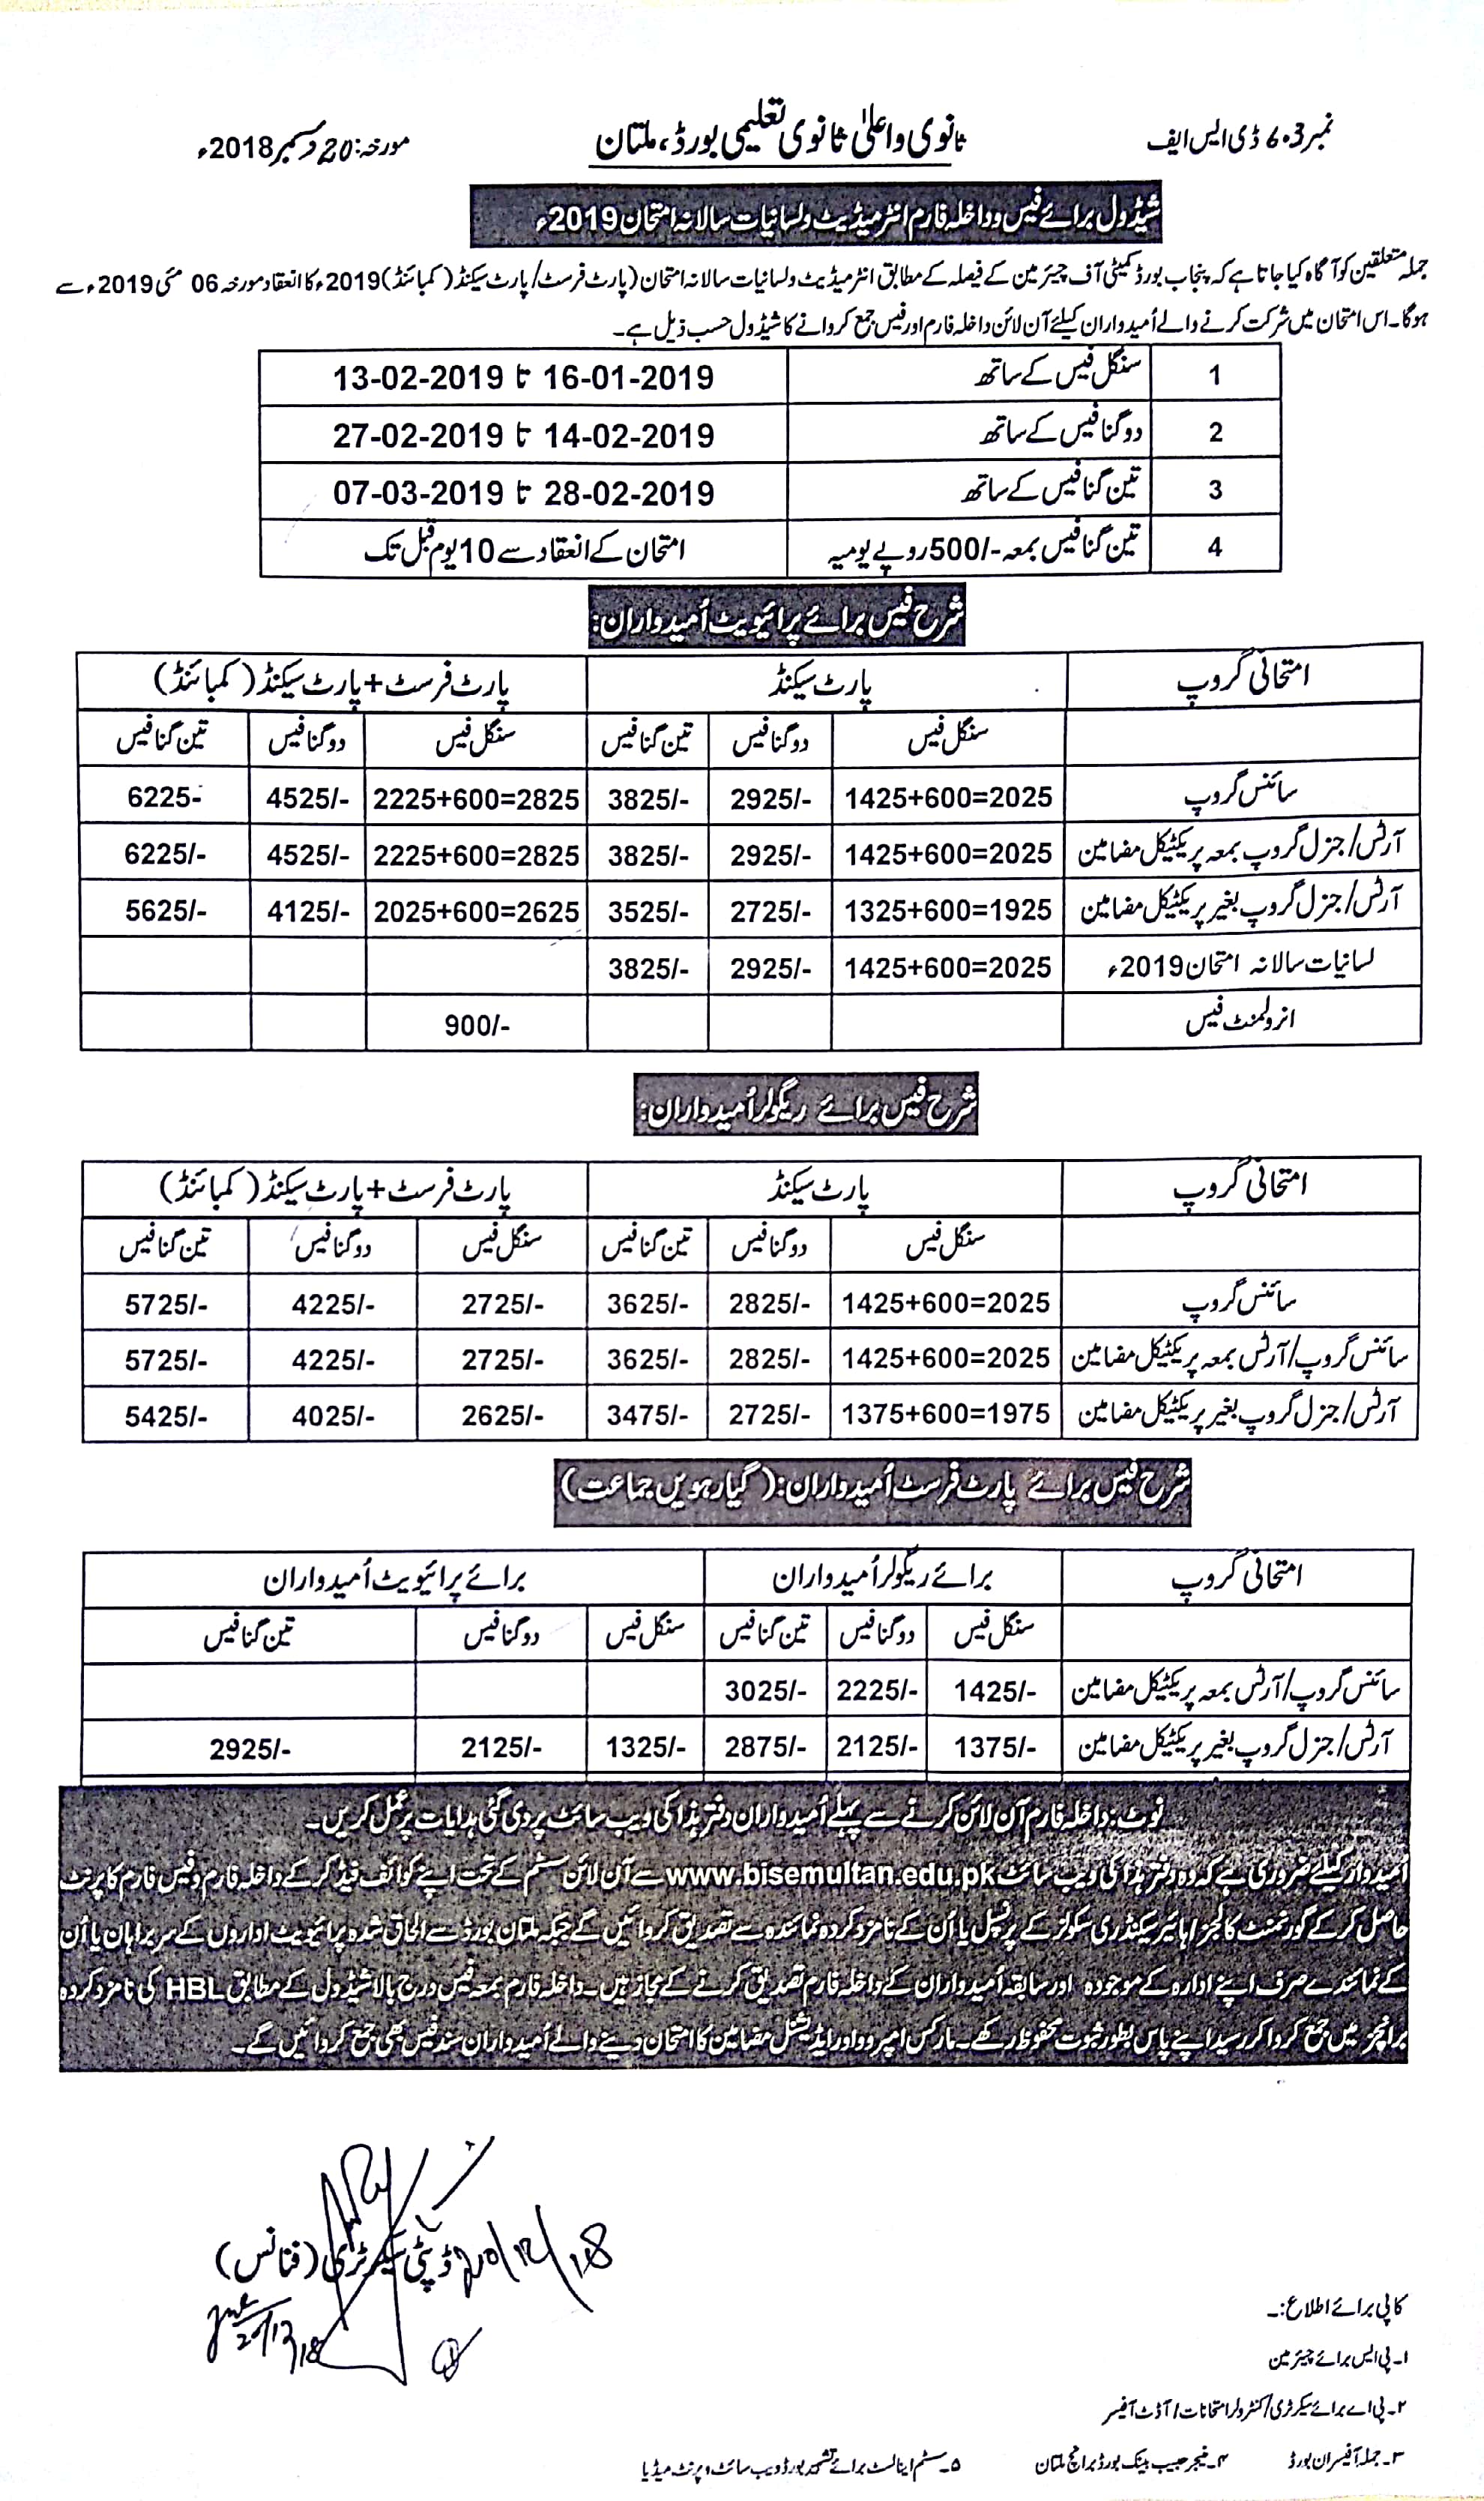 نمبر 603 ڈی ایس ایف ثانوی و اعلیٰ ثانوی تعلیمی بورڈ، ملتان مورخہ: 20 دسمبر 2018ء
شیڈول برائے فیس و داخلہ فارم انٹرمیڈیٹ و لسانیات سالانہ امتحان 2019ء
جملہ متعلقین کو آگاہ کیا جاتا ہے کہ پنجاب بورڈ کمیٹی آف چیئرمین کے فیصلہ کے مطابق انٹرمیڈیٹ و لسانیات سالانہ امتحان (پارٹ فرسٹ/پارٹ سیکنڈ (کمبائنڈ) 2019ء کا انعقاد مورخہ 06 مئی 2019ء سے
ہوگا۔ اس امتحان میں شرکت کرنے والے اُمیدواران کیلئے آن لائن داخلہ فارم اور فیس جمع کروانے کا شیڈول حسب ذیل ہے۔
1 سنگل فیس کے ساتھ 16-01-2019 تا 13-02-2019
2 دو گنا فیس کے ساتھ 14-02-2019 تا 27-02-2019
3 تین گنا فیس کے ساتھ 28-02-2019 تا 07-03-2019
4 تین گنا فیس بمعہ -/500 روپے یومیہ امتحان کے انعقاد سے 10 یوم قبل تک
شرح فیس برائے پرائیویٹ اُمیدواران:
امتحانی گروپ پارٹ سیکنڈ پارٹ فرسٹ + پارٹ سیکنڈ (کمبائنڈ)
سنگل فیس دو گنا فیس تین گنا فیس سنگل فیس دو گنا فیس تین گنا فیس
سائنس گروپ 1425+600=2025 2925/- 3825/- 2225+600=2825 4525/- 6225-
آرٹس/جنرل گروپ بمعہ پریکٹیکل مضامین 1425+600=2025 2925/- 3825/- 2225+600=2825 4525/- 6225/-
آرٹس/جنرل گروپ بغیر پریکٹیکل مضامین 1325+600=1925 2725/- 3525/- 2025+600=2625 4125/- 5625/-
لسانیات سالانہ امتحان 2019ء 1425+600=2025 2925/- 3825/-
انرولمنٹ فیس 900/-
شرح فیس برائے ریگولر اُمیدواران:
امتحانی گروپ پارٹ سیکنڈ پارٹ فرسٹ + پارٹ سیکنڈ (کمبائنڈ)
سنگل فیس دو گنا فیس تین گنا فیس سنگل فیس دو گنا فیس تین گنا فیس
سائنس گروپ 1425+600=2025 2825/- 3625/- 2725/- 4225/- 5725/-
سائنس گروپ/آرٹس بمعہ پریکٹیکل مضامین 1425+600=2025 2825/- 3625/- 2725/- 4225/- 5725/-
آرٹس/جنرل گروپ بغیر پریکٹیکل مضامین 1375+600=1975 2725/- 3475/- 2625/- 4025/- 5425/-
شرح فیس برائے پارٹ فرسٹ اُمیدواران: (گیارہویں جماعت)
امتحانی گروپ برائے ریگولر اُمیدواران برائے پرائیویٹ اُمیدواران
سنگل فیس دو گنا فیس تین گنا فیس سنگل فیس دو گنا فیس تین گنا فیس
سائنس گروپ/آرٹس بمعہ پریکٹیکل مضامین 1425/- 2225/- 3025/-
آرٹس/جنرل گروپ بغیر پریکٹیکل مضامین 1375/- 2125/- 2875/- 1325/- 2125/- 2925/-
نوٹ: داخلہ فارم آن لائن کرنے سے پہلے اُمیدواران دفتر ہذا کی ویب سائٹ پر دی گئی ہدایات پر عمل کریں۔
اُمیدوار کیلئے ضروری ہے کہ وہ دفتر ہذا کی ویب سائٹ www.bisemultan.edu.pk سے آن لائن سسٹم کے تحت اپنے کوائف فیڈ کر کے داخلہ فارم و فیس فارم کا پرنٹ
حاصل کر کے گورنمنٹ کالجز/ہائیر سیکنڈری سکولز کے پرنسپل یا اُن کے نامزد کردہ نمائندہ سے تصدیق کروائیں گے جبکہ ملتان بورڈ سے الحاق شدہ پرائیویٹ اداروں کے سربراہان یا اُن
کے نمائندے صرف اپنے ادارہ کے موجودہ اور سابقہ اُمیدواران کے داخلہ فارم تصدیق کرنے کے مجاز ہیں۔ داخلہ فارم بمعہ فیس درج بالا شیڈول کے مطابق HBL کی نامزد کردہ
برانچز میں جمع کروا کر رسید اپنے پاس بطور ثبوت محفوظ رکھے۔ مارکس امپروو اور ایڈیشنل مضامین کا امتحان دینے والے اُمیدواران سند فیس بھی جمع کروائیں گے۔
20/12/18
ڈپٹی سیکرٹری (فنانس)
20/12/18
کاپی برائے اطلاع:۔
۱۔ پی ایس برائے چیئرمین
۲۔ پی اے برائے سیکرٹری/کنٹرولر امتحانات/آڈٹ آفیسر
۳۔ جملہ آفیسران بورڈ ۴۔ منیجر حبیب بینک بورڈ برانچ ملتان ۵۔ سسٹم اینالسٹ برائے تشہیر بورڈ ویب سائٹ و پرنٹ میڈیا